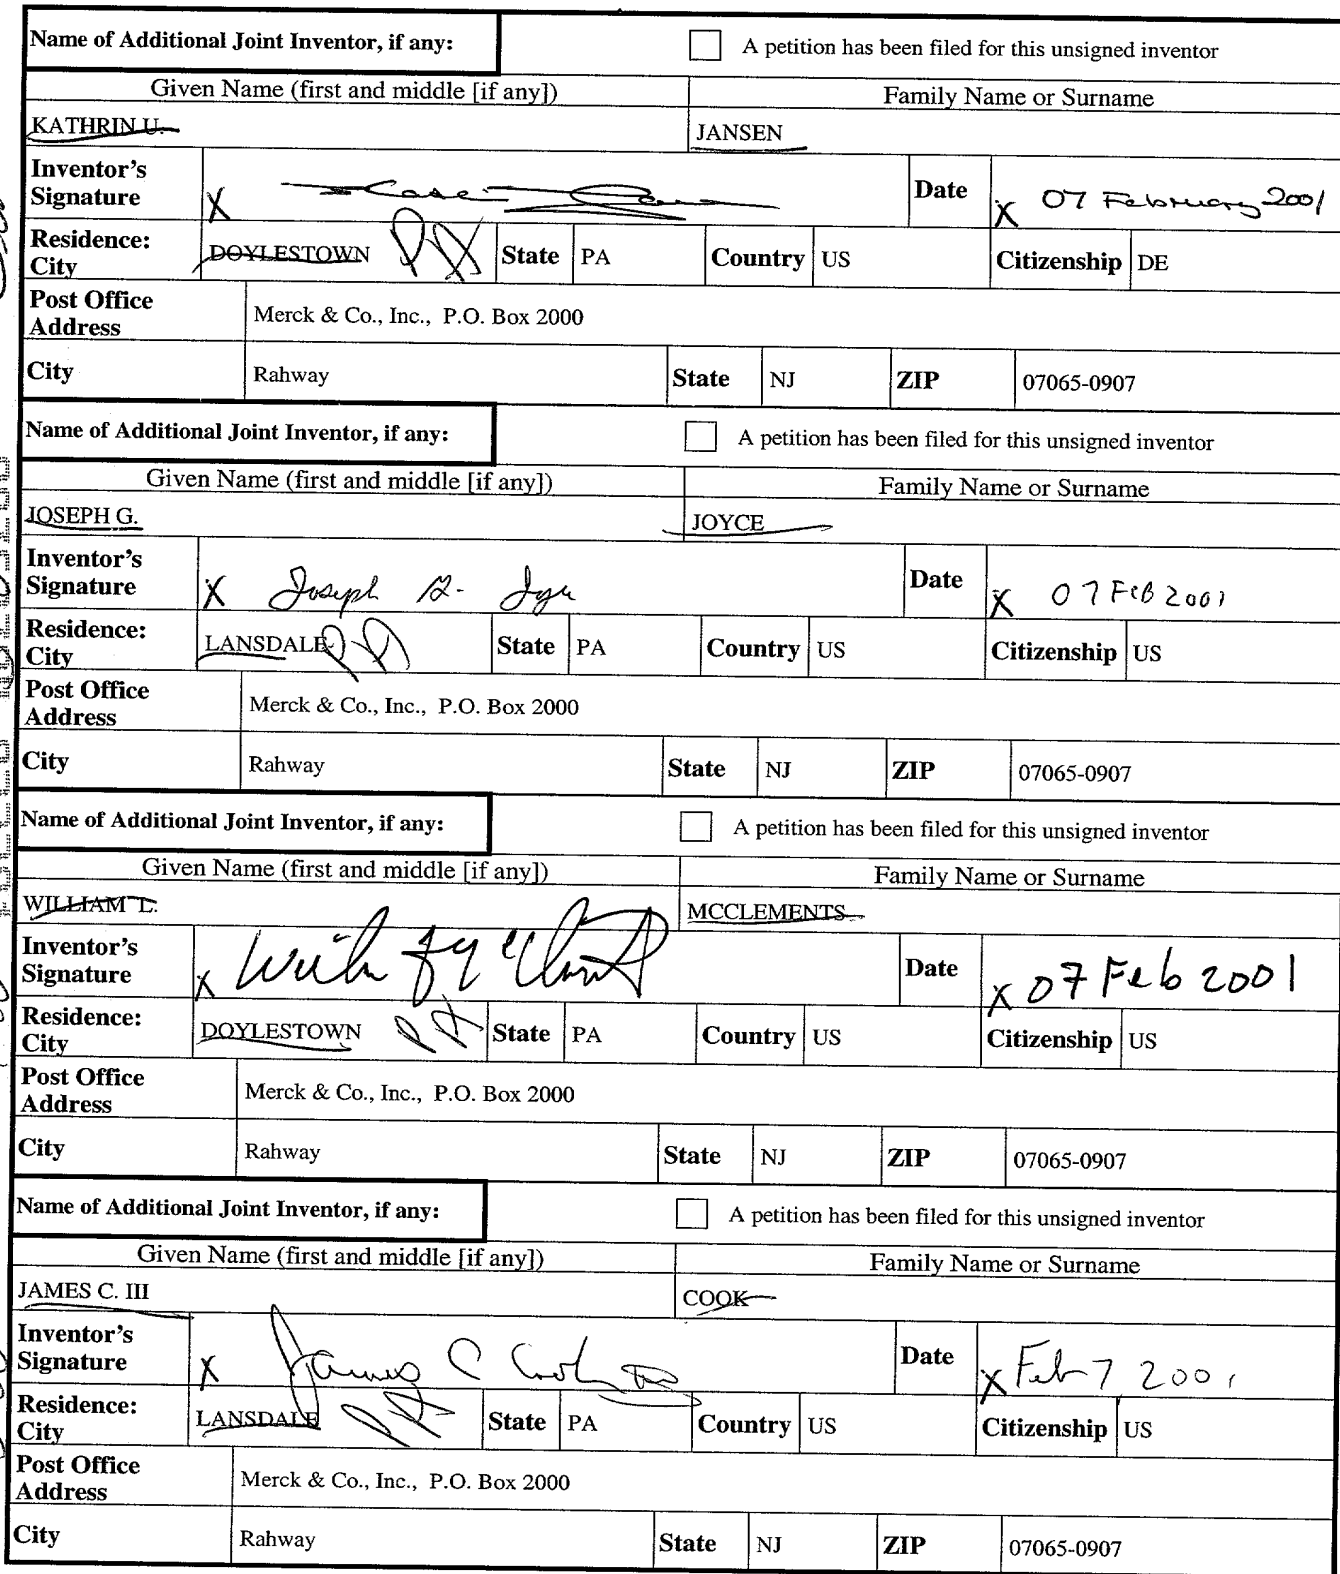 Name of Additional Joint Inventor, if any: A petition has been filed for this unsigned inventor
Given Name (first and middle [if any]) Family Name or Surname
KATHRIN U. JANSEN
Inventor's Signature X Date X 07 February 2001
Residence: City DOYLESTOWN PA State PA Country US Citizenship DE
Post Office Address Merck & Co., Inc., P.O. Box 2000
City Rahway State NJ ZIP 07065-0907
Name of Additional Joint Inventor, if any: A petition has been filed for this unsigned inventor
Given Name (first and middle [if any]) Family Name or Surname
JOSEPH G. JOYCE
Inventor's Signature X Joseph G. Joyce Date X 07 FEB 2001
Residence: City LANSDALE PA State PA Country US Citizenship US
Post Office Address Merck & Co., Inc., P.O. Box 2000
City Rahway State NJ ZIP 07065-0907
Name of Additional Joint Inventor, if any: A petition has been filed for this unsigned inventor
Given Name (first and middle [if any]) Family Name or Surname
WILLIAM L. MCCLEMENTS
Inventor's Signature X Date X 07 Feb 2001
Residence: City DOYLESTOWN PA State PA Country US Citizenship US
Post Office Address Merck & Co., Inc., P.O. Box 2000
City Rahway State NJ ZIP 07065-0907
Name of Additional Joint Inventor, if any: A petition has been filed for this unsigned inventor
Given Name (first and middle [if any]) Family Name or Surname
JAMES C. III COOK
Inventor's Signature X James C Cook III Date X Feb 7, 2001
Residence: City LANSDALE PA State PA Country US Citizenship US
Post Office Address Merck & Co., Inc., P.O. Box 2000
City Rahway State NJ ZIP 07065-0907